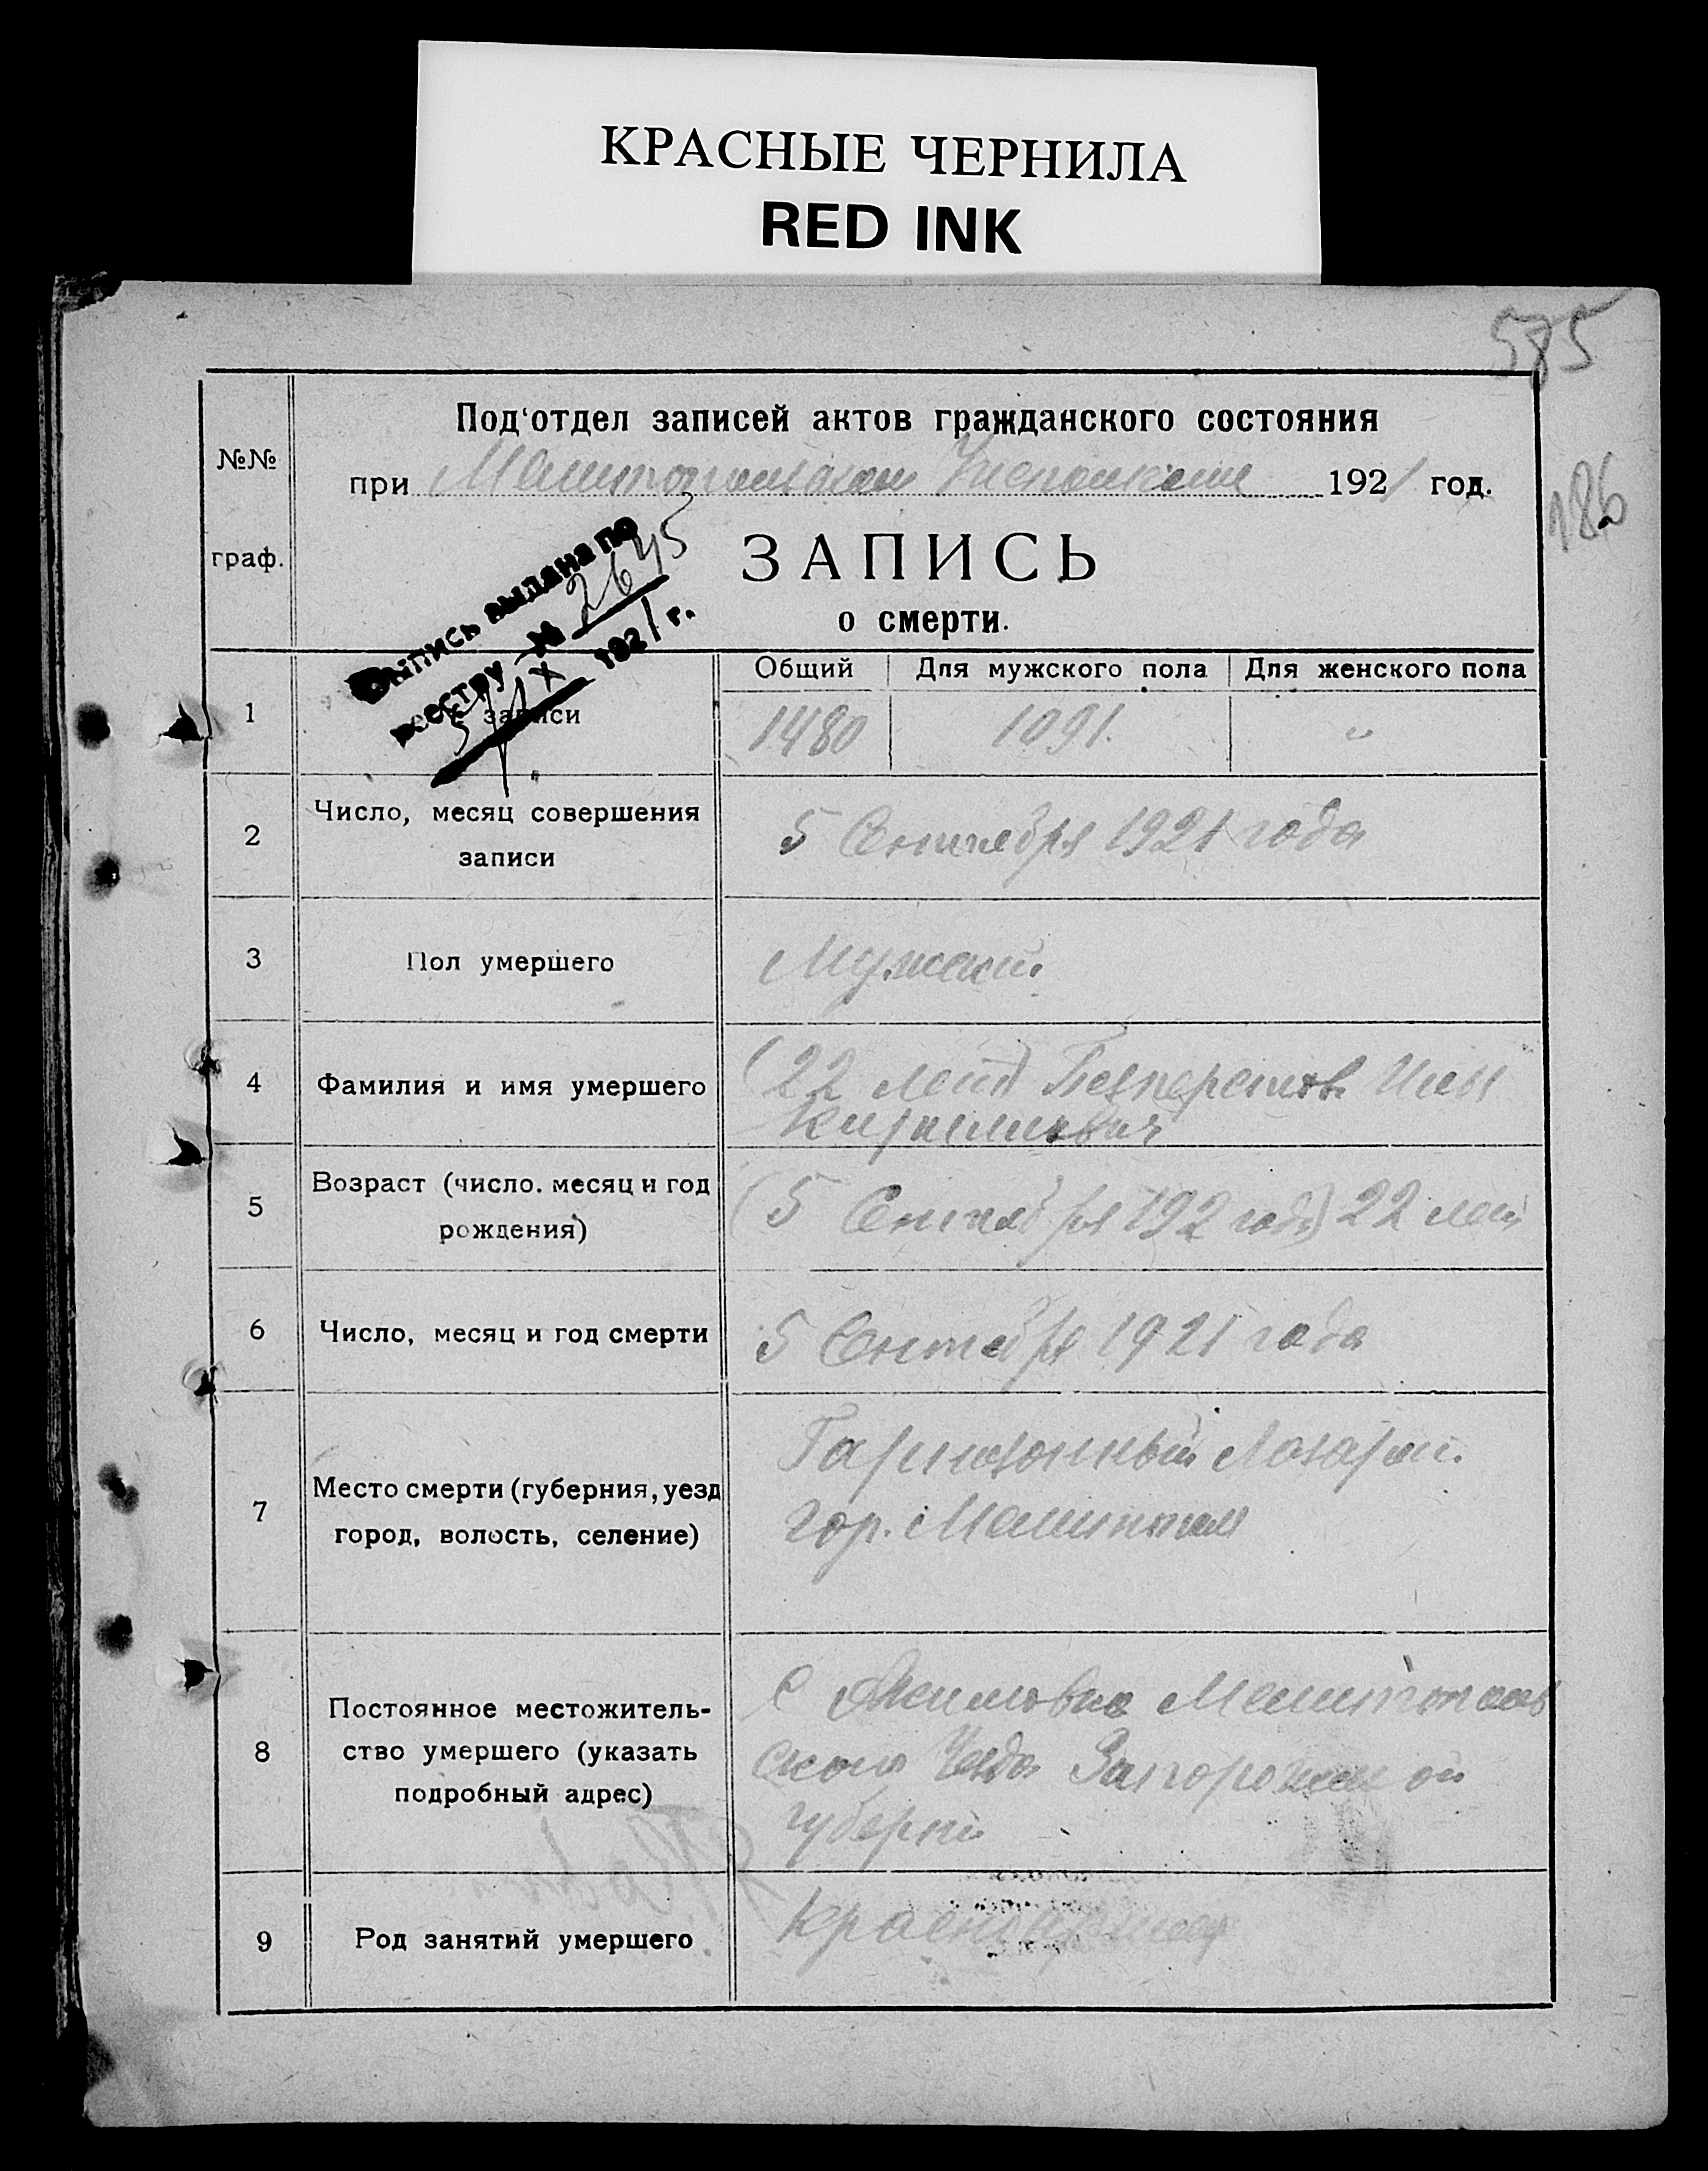 КРАСНЫЕ ЧЕРНИЛА
RED INK
585
Под‘отдел записей актов гражданского состояния
№№
при Мелитопольском Исполкоме 1921 год.
186
граф.
ЗАПИСЬ
о смерти.
Выпись выдана по
реестру № 2645
5/X 1921 г.
Общий Для мужского пола Для женского пола
1 № записи 1480 1091. "
2 Число, месяц совершения
записи
5 Сентября 1921 года
3 Пол умершего Мужской.
4 Фамилия и имя умершего
(22 лет)
Кирилович
5 Возраст (число. месяц и год
рождения)
(5 Сентября 192 года) 22 лет
6 Число, месяц и год смерти 5 Сентября 1921 года
7 Место смерти (губерния, уезд
город, волость, селение)
Гарнизонный Лазарет.
гор. Мелитополь
8 Постоянное местожитель-
ство умершего (указать
подробный адрес)
С Акимовка Мелитополь
ского Уезда Запорожской
губерни
9 Род занятий умершего Красноармеец